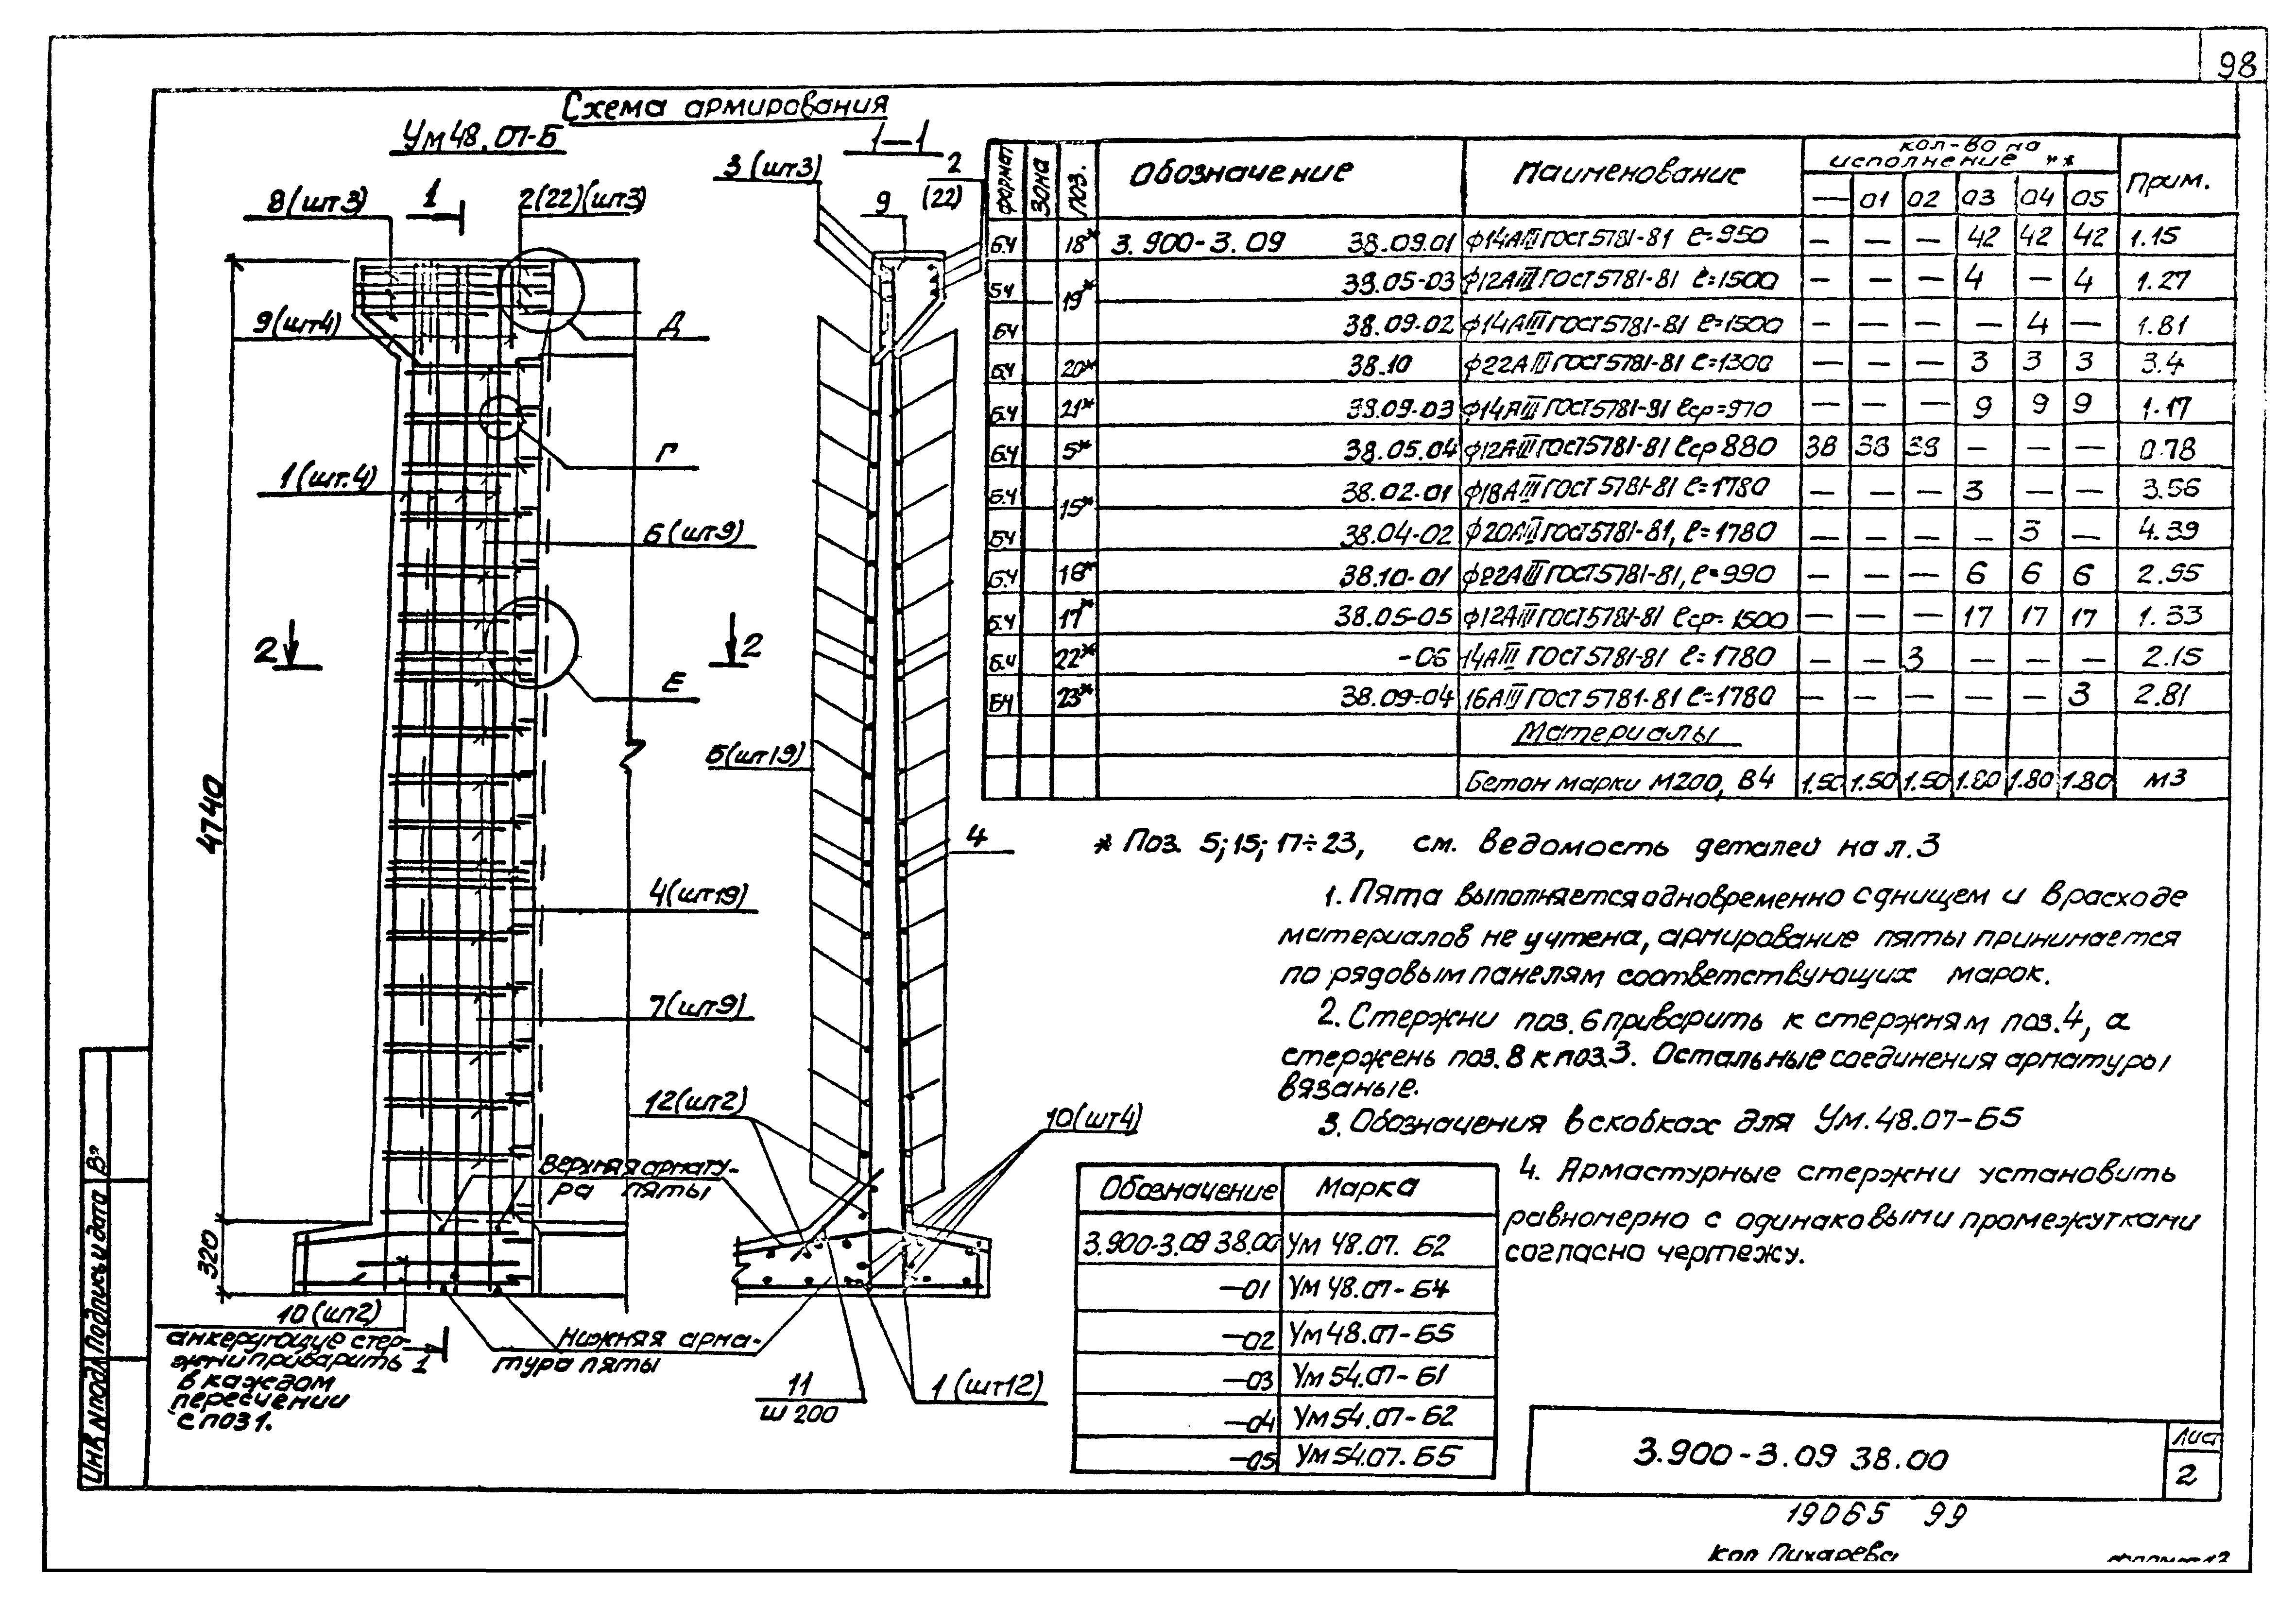 98
Схема армирования
Ум 48.07-Б
1—1
8(шт3)
1
2(22)(шт3)
3(шт3)
9
2
(22)
9(шт4)
Д
Г
1(шт.4)
6(шт9)
2
2
Е
5(шт19)
4740
4
4(шт19)
7(шт9)
12(шт2)
10(шт4)
Верхняя армату-
ра пяты
320
10(шт2)
анкерующие стер-
жни приварить
в каждом
пересечении
с поз 1.
1
Нижняя арма-
тура пяты
11
ш 200
1 (шт12)
формат Зона поз. Обозначение Наименование кол-во на исполнение ** Прим.
— 01 02 03 04 05
БЧ 18* 3.900-3.09 38.09.01 ф14АIII ГОСТ5781-81 ℓ=950 — — — 42 42 42 1.15
БЧ 19* 38.05-03 ф12АIII ГОСТ5781-81 ℓ=1500 — — — 4 — 4 1.27
БЧ 38.09-02 ф14АIII ГОСТ5781-81 ℓ=1500 — — — — 4 — 1.81
БЧ 20* 38.10 ф22АIII ГОСТ5781-81 ℓ=1300 — — — 3 3 3 3.4
БЧ 21* 38.09-03 ф14АIII ГОСТ5781-81 ℓср=970 — — — 9 9 9 1.17
БЧ 5* 38.05.04 ф12АIII ГОСТ5781-81 ℓср 880 38 38 38 — — — 0.78
БЧ 15* 38.02-01 ф18АIII ГОСТ5781-81 ℓ=1780 — — — 3 — — 3.56
БЧ 38.04-02 ф20АIII ГОСТ5781-81, ℓ=1780 — — — — 3 — 4.39
БЧ 16* 38.10-01 ф22АIII ГОСТ5781-81, ℓ=990 — — — 6 6 6 2.95
БЧ 17* 38.05-05 ф12АIII ГОСТ5781-81 ℓср=1500 — — — 17 17 17 1.33
БЧ 22* -06 14АIII ГОСТ5781-81 ℓ=1780 — — 3 — — — 2.15
БЧ 23* 38.09-04 16АIII ГОСТ5781-81 ℓ=1780 — — — — — 3 2.81
Материалы
Бетон марки М200, В4 1.50 1.50 1.50 1.80 1.80 1.80 м3
* Поз. 5; 15; 17÷23, см. ведомость деталей на л.3
1. Пята выполняется одновременно с днищем и в расходе
материалов не учтена, армирование пяты принимается
по рядовым панелям соответствующих марок.
2. Стержни поз. 6 приварить к стержням поз. 4, а
стержень поз. 8 к поз3. Остальные соединения арматуры
вязаные.
3. Обозначения в скобках для Ум.48.07-Б5
4. Армастурные стержни установить
равномерно с одинаковыми промежутками
согласно чертежу.
Обозначение Марка
3.900-3.09 38.00 Ум 48.07. Б2
—01 Ум 48.07-Б4
—02 Ум 48.07-Б5
—03 Ум 54.07-Б1
—04 Ум 54.07-Б2
—05 Ум 54.07. Б5
3.900-3.09 38.00
Лист
2
Инв N подл Подпись и дата В
19065 99
Коп Пихарева